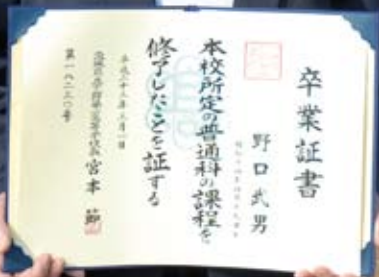 卒業証書
野口武男
本校所定の普通科の課程を
修了したことを証する
平成二十三年三月一日
宮本 節
第一八二三〇号